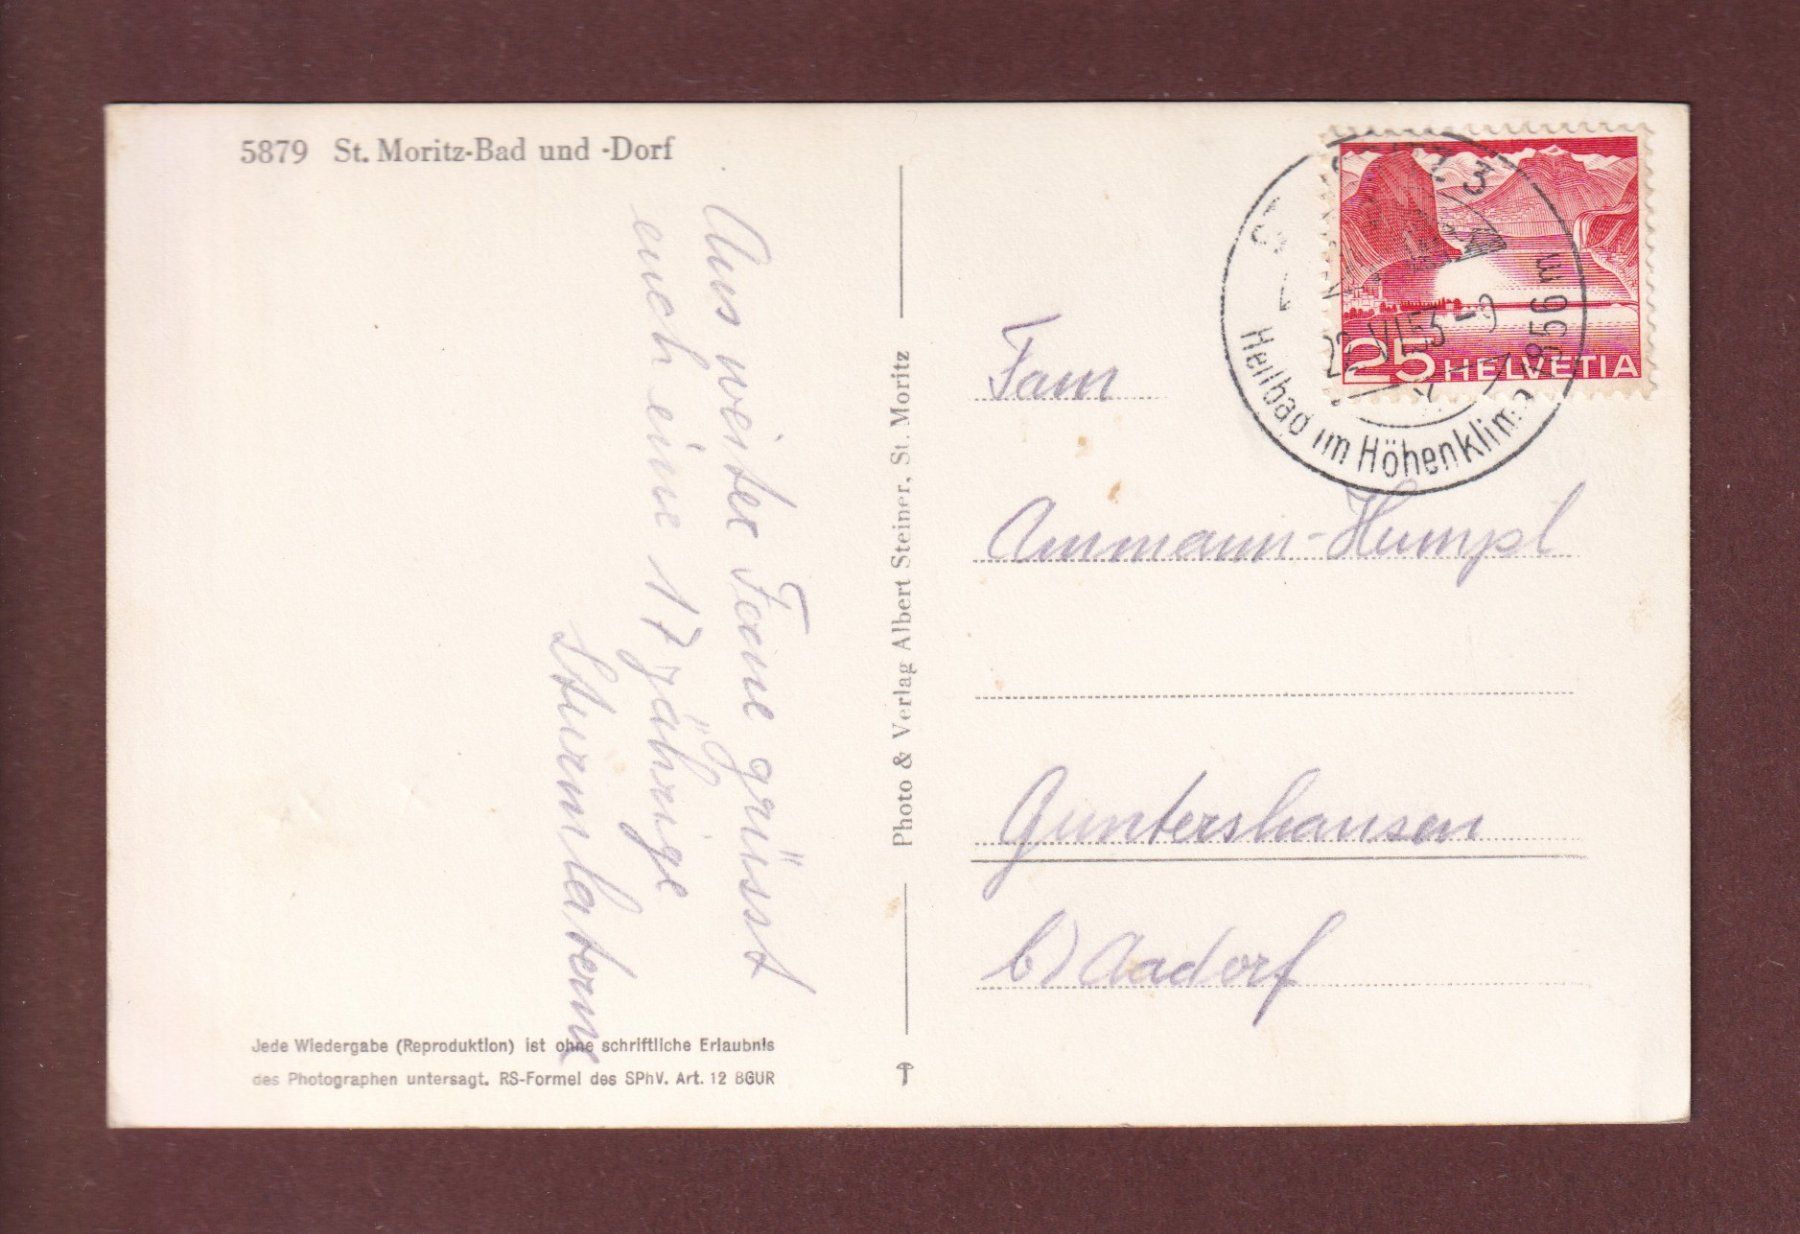 5879 St. Moritz-Bad und -Dorf
Aus weiter Ferne grüsst
euch eine 17 jährige
Sturmlaterne
Jede Wiedergabe (Reproduktion) ist ohne schriftliche Erlaubnis
des Photographen untersagt. RS-Formel des SPhV. Art. 12 BGUR
Photo & Verlag Albert Steiner, St. Moritz
25 HELVETIA
22.VI.53-9
Heilbad im Höhenklima 1856 m
Fam
Ammann-Humpl
Guntershausen
b) Aadorf